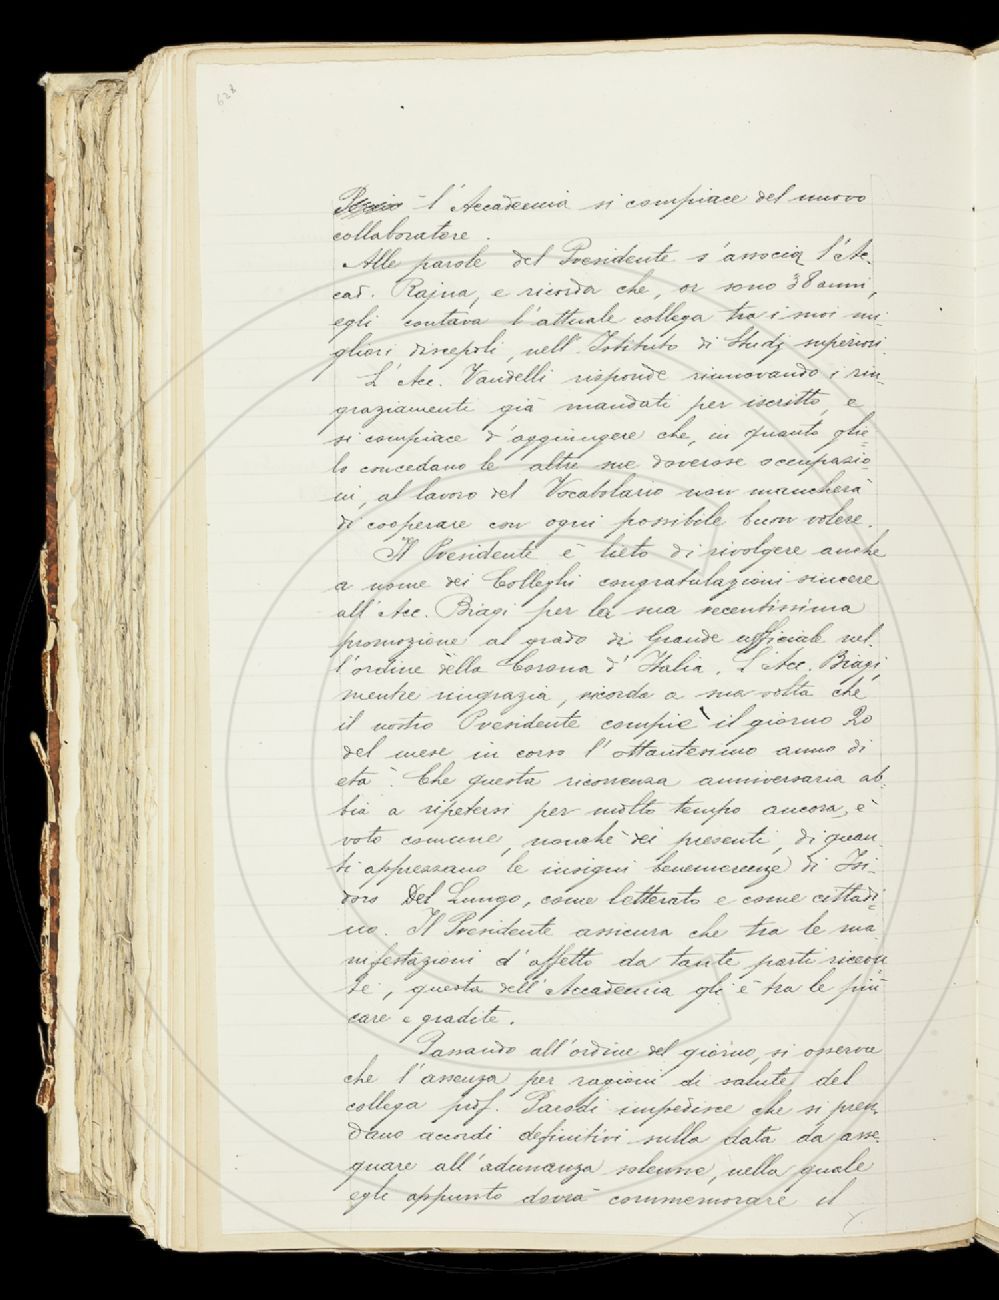 628
l'Accademia si compiace del nuovo
collaboratore.
Alle parole del Presidente s'associa l'Ac-
cad. Rajna, e ricorda che, or sono 38 anni,
egli contava l'attuale collega tra i suoi mi-
gliori discepoli, nell'Istituto di Studj superiori.
L'Acc. Vandelli risponde rinnovando i rin-
graziamenti già mandati per iscritto, e
si compiace d'aggiungere che, in quanto glie-
lo concedano le altre sue doverose occupazio-
ni, al lavoro del Vocabolario non mancherà
di cooperare con ogni possibile buon volere.
Il Presidente è lieto di rivolgere anche
a nome dei Colleghi congratulazioni sincere
all'Acc. Biagi per la sua recentissima
promozione al grado di Grande ufficiale nel-
l'ordine della Corona d'Italia. L'Acc. Biagi,
mentre ringrazia, ricorda a sua volta che
il nostro Presidente compiè il giorno 20
del mese in corso l'ottantesimo anno di
età. Che questa ricorrenza anniversaria ab-
bia a ripetersi per molto tempo ancora, è
voto comune, nonché dei presenti, di quan-
ti apprezzano le insigni benemerenze di Isi-
doro Del Lungo, come letterato e come cittadi-
no. Il Presidente assicura che tra le ma
nifestazioni d'affetto da tante parti ricevu
te, questa dell'Accademia gli è tra le più
care e gradite.
Passando all'ordine del giorno, si osserva
che l'assenza per ragioni di salute del
collega prof. Parodi impedisce che si pren-
dano accordi definitivi sulla data da asse-
gnare all'adunanza solenne, nella quale
egli appunto dovrà commemorare il